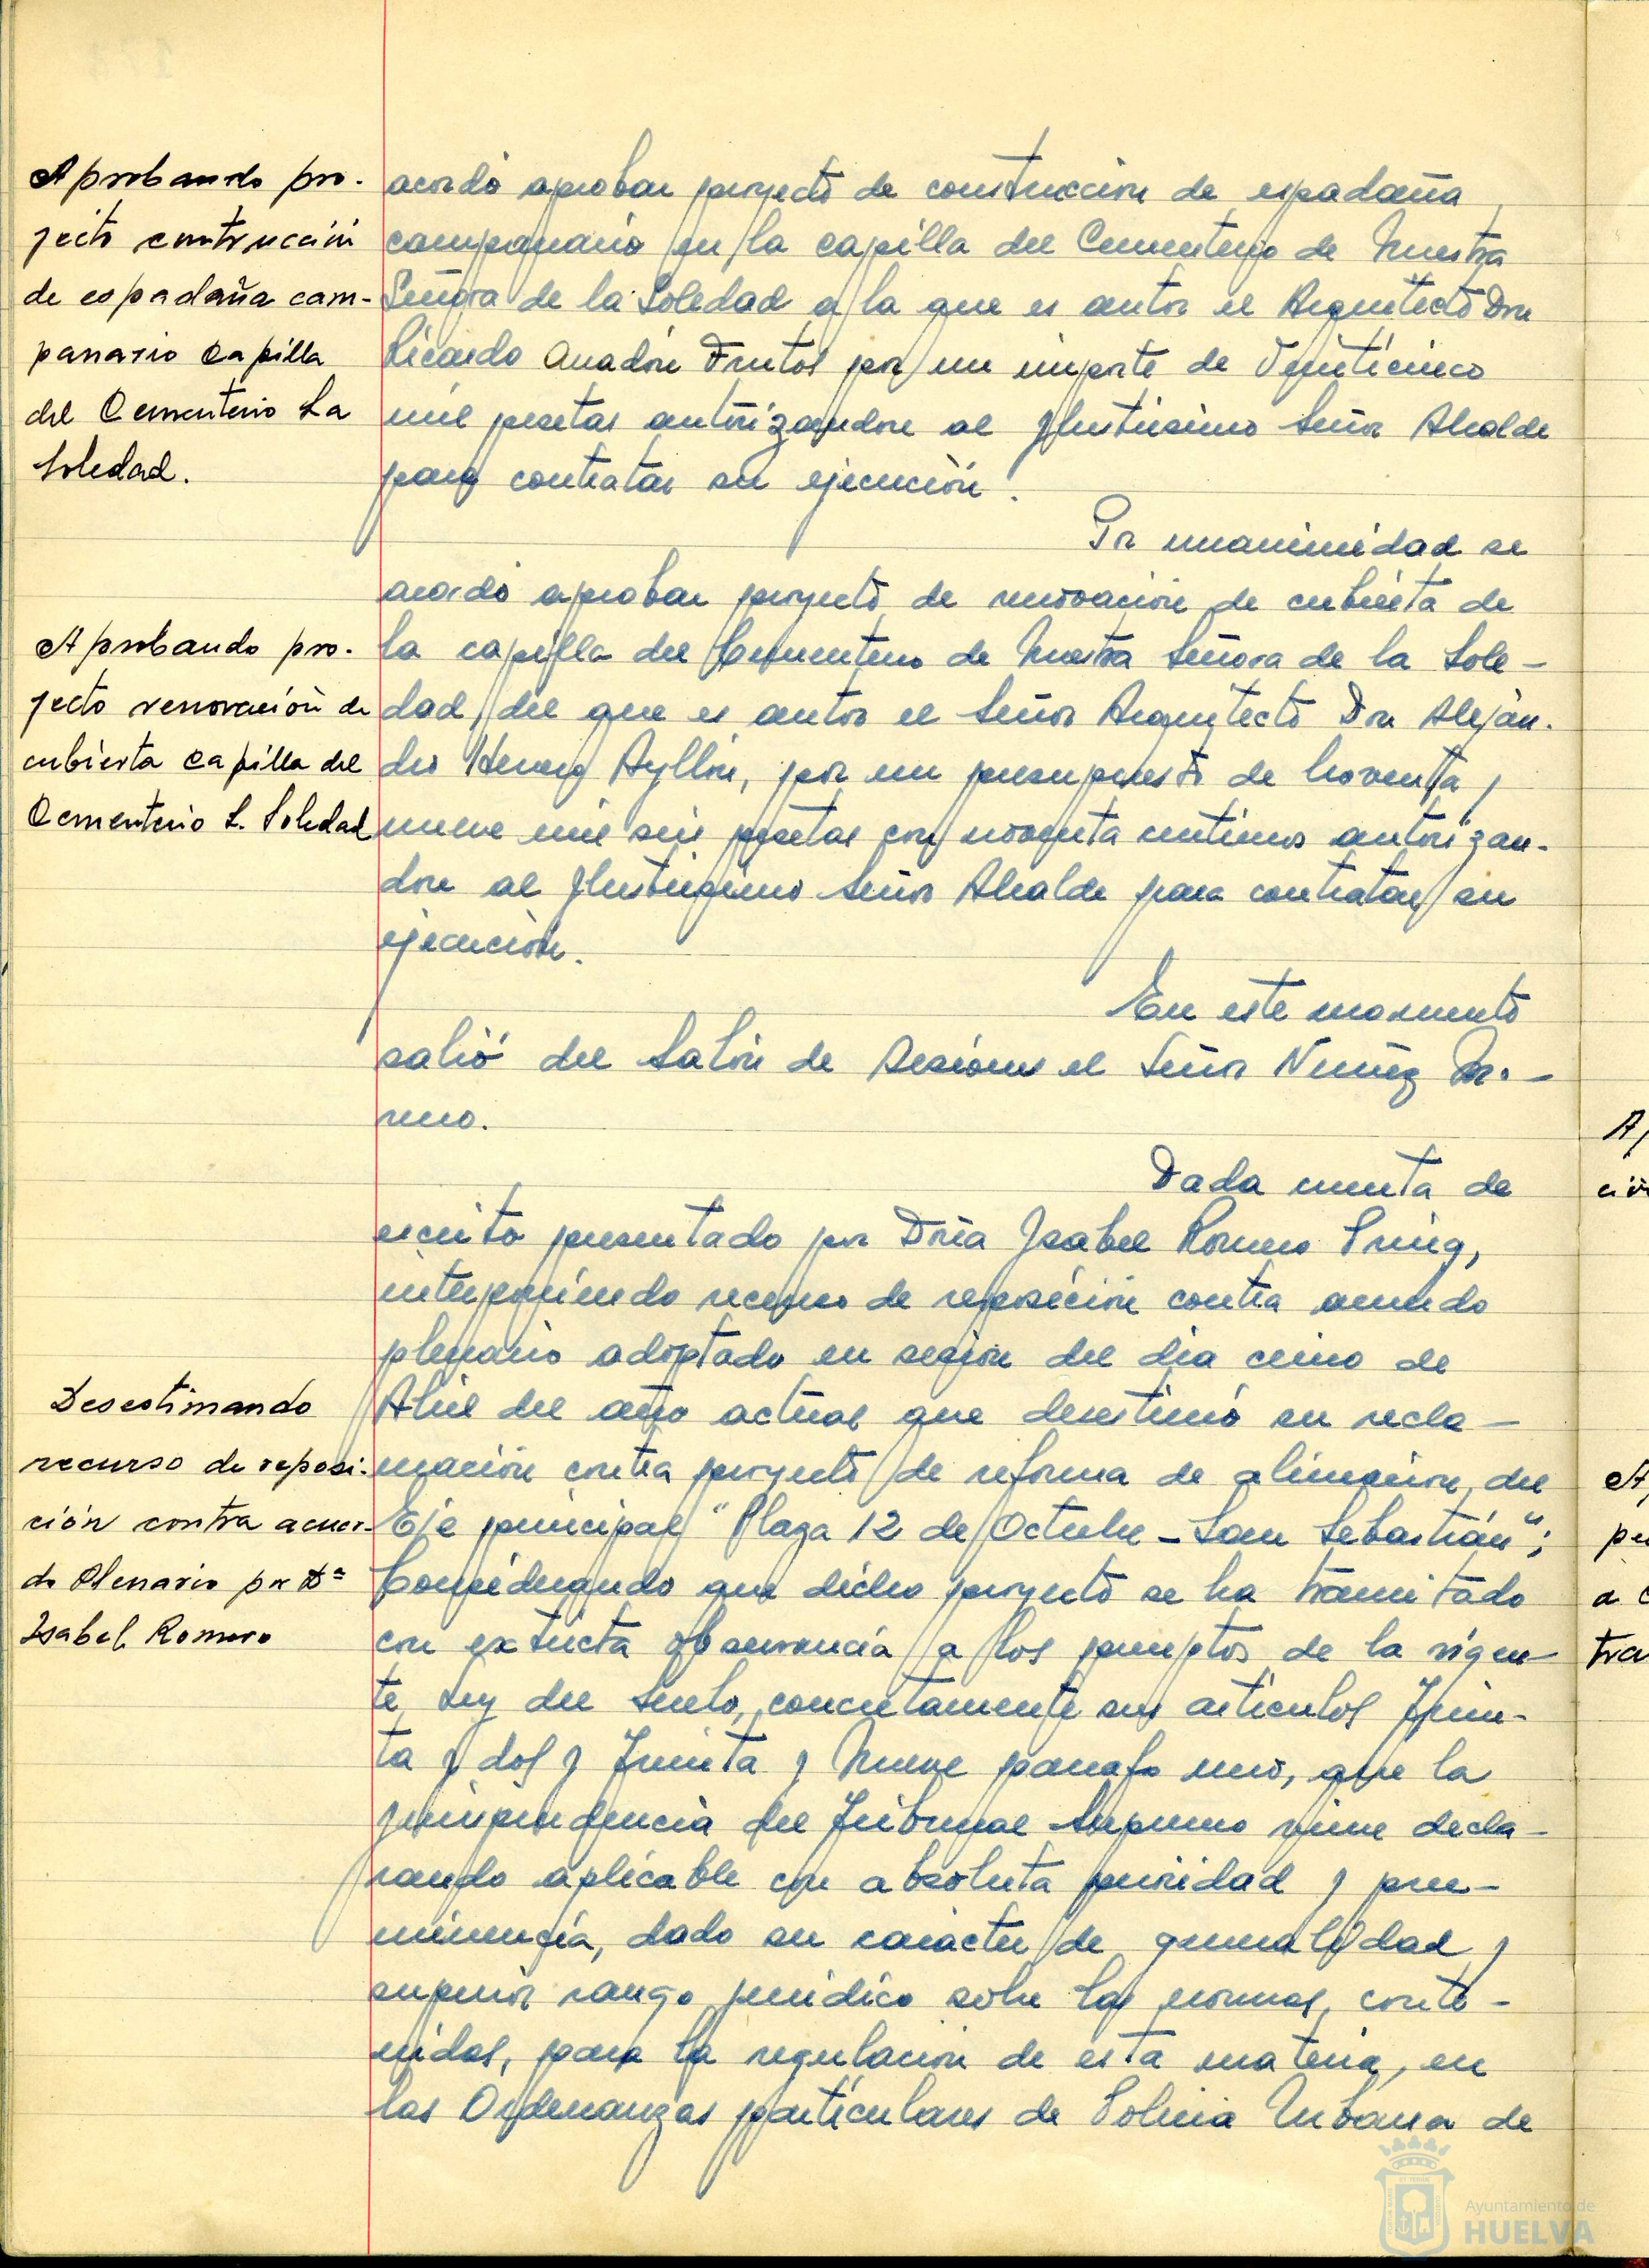 Aprobando pro-
yecto contrucción
de espadaña cam-
panario capilla
del Cementerio La
Soledad.
acordó aprobar proyecto de construccion de espadaña
campanario en la capilla del Cementerio de Nuestra
Señora de la Soledad a la que es autor el Arquitecto Don
Ricardo Anadón Frutos por un importe de Veinticinco
mil pesetas autorizandose al Ilustrisimo Señor Alcalde
para contratar su ejecución.
Por unanimidad se
acordó aprobar proyecto de renovación de cubierta de
la capilla del Cementerio de Nuestra Señora de la Sole-
dad, del que es autor el Señor Arquitecto Don Alejan-
dro Herrero Ayllón, por un presupuesto de Noventa y
nueve mil seis pesetas con noventa centimos autorizan-
dose al Ilustrisimo Señor Alcalde para contratar su
ejecución.
Aprobando pro-
yecto renovación de
cubierta capilla del
Cementerio L. Soledad
En este momento
salió del Salón de Sesiones el Señor Nuñez Mo-
reno.
Dada cuenta de
escrito presentado por Doña Isabel Romero Puig,
interponiendo recurso de reposición contra acuerdo
plenario adoptado en sesion del dia cinco de
Abril del año actual que desestimó su recla-
mación contra proyecto de reforma de alineacion, del
Eje principal "Plaza 12 de Octubre - San Sebastián";
Considerando que dicho proyecto se ha tramitado
con extricta observancia a los preceptos de la vigen-
te Ley del Suelo, concretamente sus articulos Trein-
ta y dos y Treinta y Nueve parrafo uno, que la
Jurisprudencia del Tribunal Supremo viene decla-
rando aplicable con absoluta prioridad y pree-
minencia, dado su caracter de generalidad y
superior rango juridico sobre las normas, conte-
nidas, para la regulacion de esta materia, en
las Ordenanzas particulares de Policia Urbana de
Desestimando
recurso de reposi-
ción contra acuer-
do Plenario por Dª
Isabel Romero
Ayuntamiento de
HUELVA